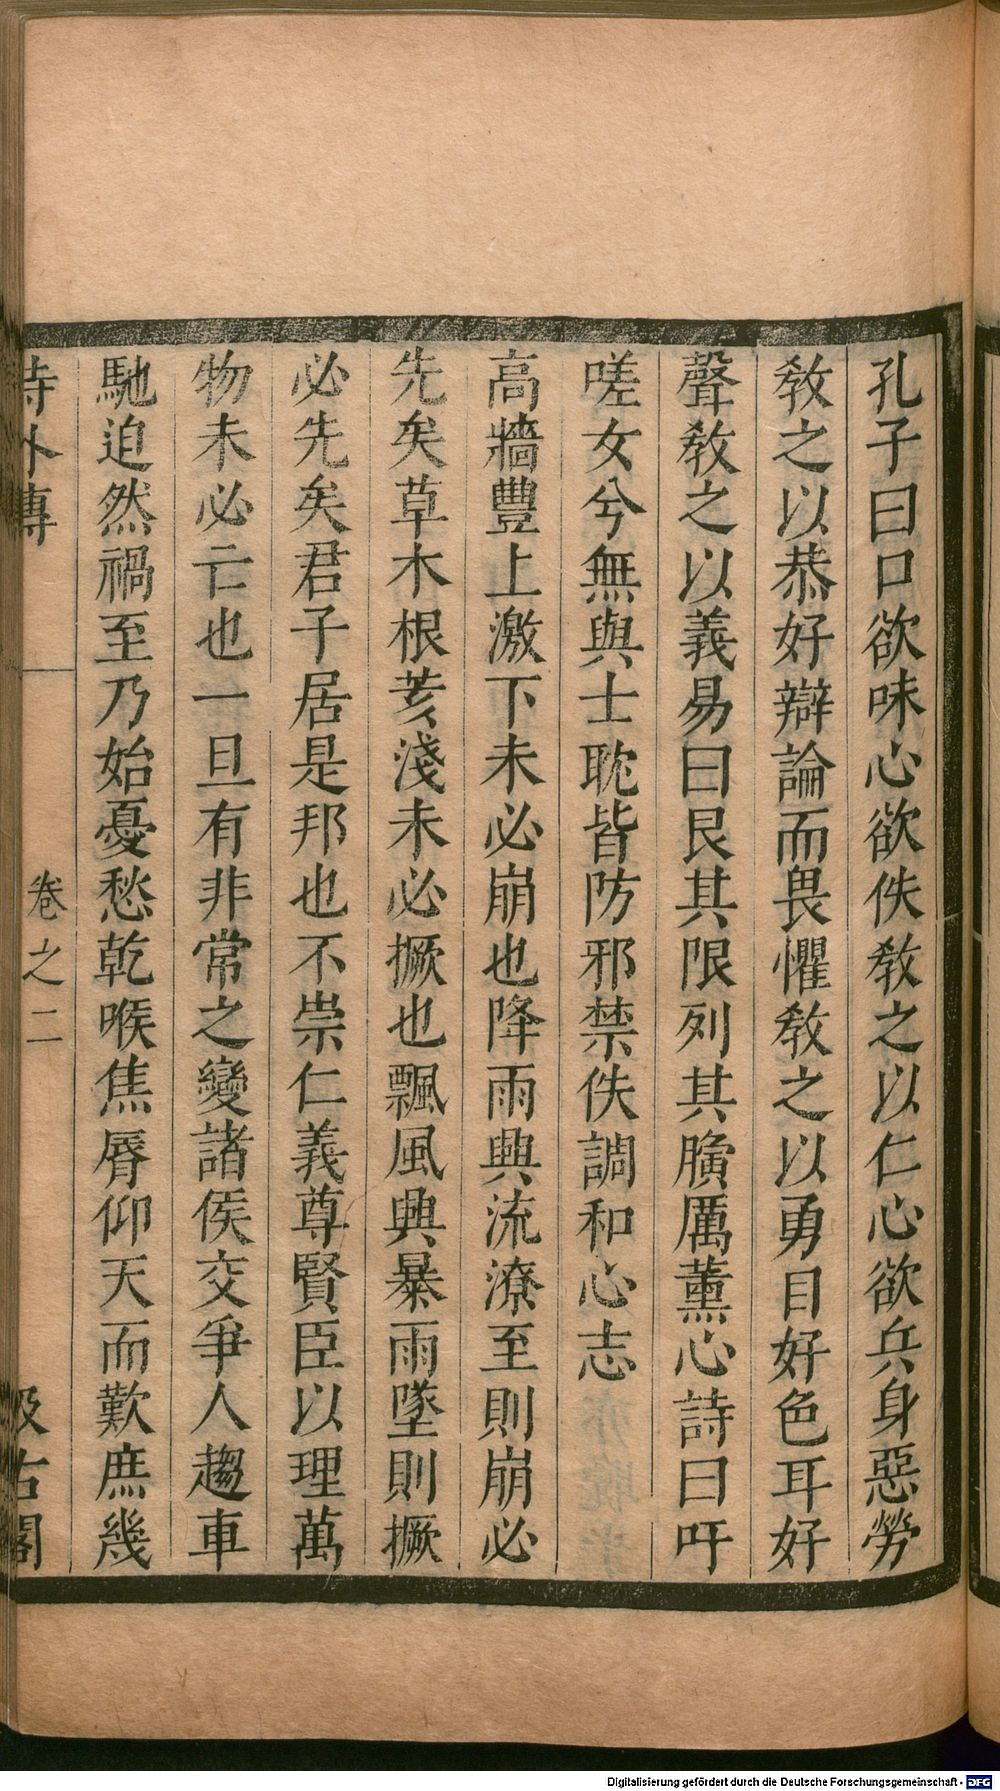 孔子曰口欲味心欲佚敎之以仁心欲兵身惡勞
敎之以恭好辯論而畏懼敎之以勇目好色耳好
聲敎之以義易曰艮其限列其䐵厲薰心詩曰吁
嗟女兮無與士耽皆防邪禁佚調和心志
高牆豐上激下未必崩也降雨興流潦至則崩必
先矣草木根荄淺未必撅也飄風興暴雨墜則撅
必先矣君子居是邦也不崇仁義尊賢臣以理萬
物未必亡也一旦有非常之變諸侯交爭人趨車
馳迫然禍至乃始憂愁乾喉焦脣仰天而歎庶幾
詩外傳 卷之二 汲古閣
Digitalisierung gefördert durch die Deutsche Forschungsgemeinschaft - DFG